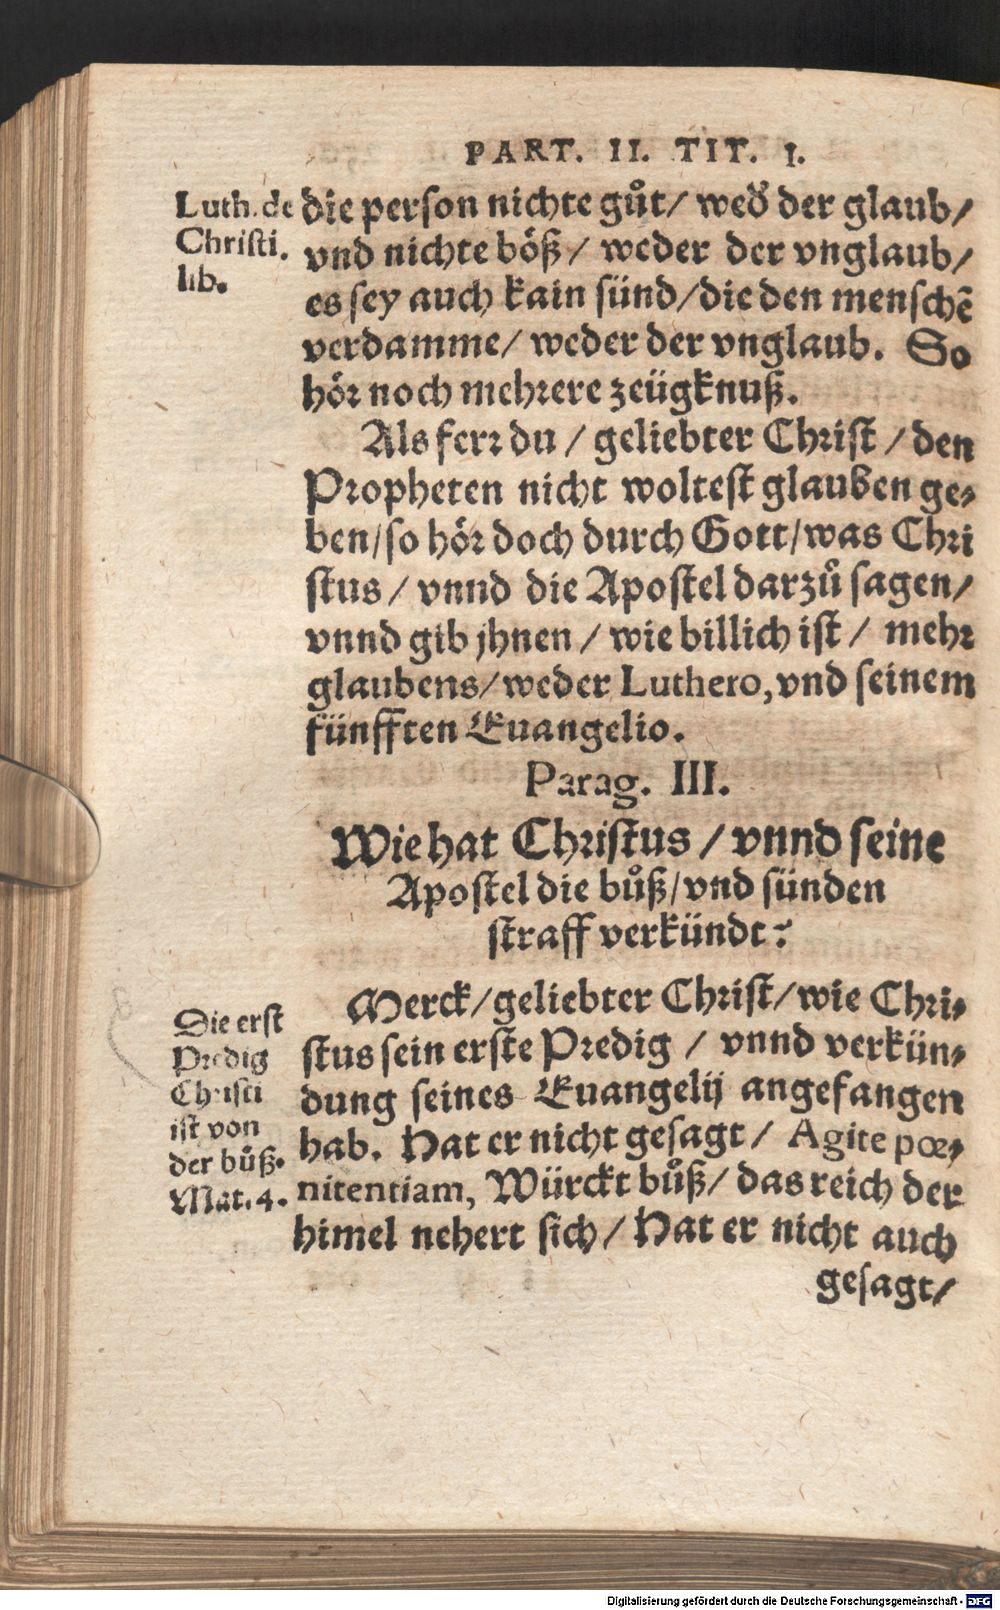 PART. II. TIT. I.
Luth. de
Christi.
lib.
die person nichte gůt/ wed̃ der glaub/
vnd nichte böß/ weder der vnglaub/
es sey auch kain sünd/die den menschē
verdamme/ weder der vnglaub. So
hör noch mehrere zeügknuß.
Als ferr du / geliebter Christ / den
Propheten nicht woltest glauben ge-
ben/so hör doch durch Gott/was Chri
stus / vnnd die Apostel darzů sagen/
vnnd gib jhnen / wie billich ist / mehr
glaubens/weder Luthero, vnd seinem
fünfften Euangelio.
Parag. III.
Wie hat Christus / vnnd seine
Apostel die bůß/vnd sünden
straff verkündt?
Die erst
Predig
Christi
ist von
der bůß.
Mat. 4.
Merck/geliebter Christ/wie Chri-
stus sein erste Predig / vnnd verkün-
dung seines Euangelij angefangen
hab. Hat er nicht gesagt/ Agite pœ-
nitentiam, Würckt bůß/ das reich der
himel nehert sich/ Hat er nicht auch
gesagt/
Digitalisierung gefördert durch die Deutsche Forschungsgemeinschaft - DFG